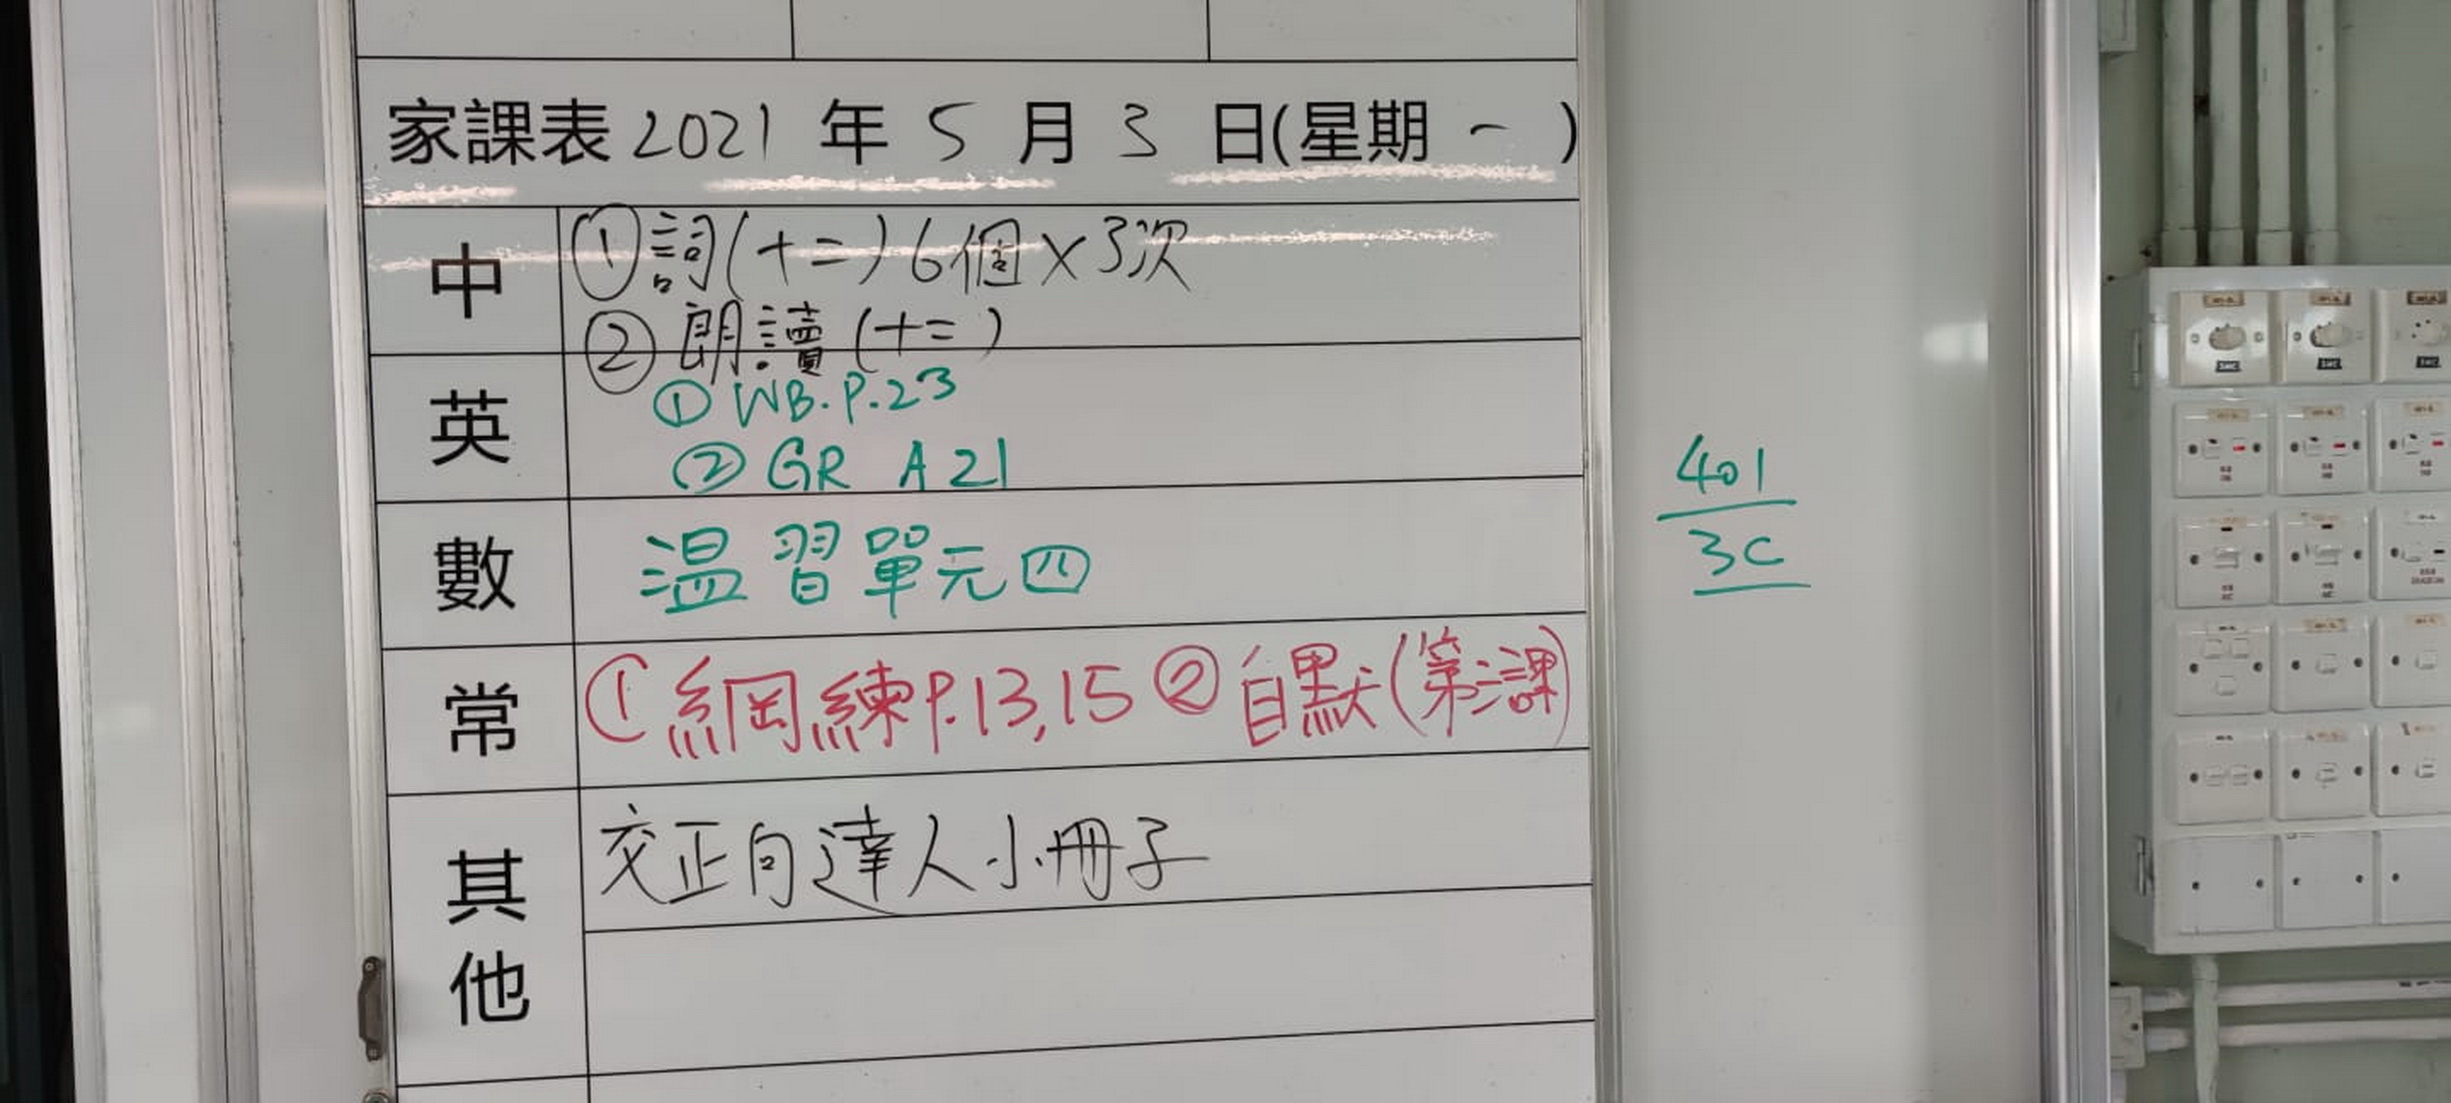 家課表 2021 年 5 月 3 日(星期 一 )
中
①詞(十二)6個×3次
②朗讀(十二)
英
①WB.P.23
②GR A21
數
溫習單元四
常
①網練P.13,15 ②自默(第二課)
其他
交正向達人小冊子
401
3C